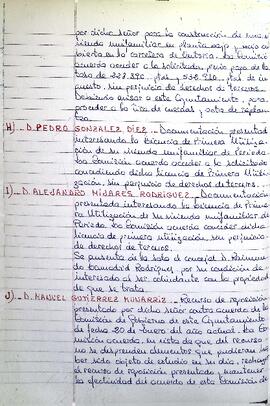 por dicho señor para la construcción de una vi-
vienda unifamiliar en planta baja y
en la carretera de Cudorea. La Comisión
acuerda acceder a lo solicitado, previo pago de la
tasa de 228.290 ptas y 538.920 ptas de im-
puesto, sin perjuicio de derechos de terceros.
avisar a este Ayuntamiento, para
proceder a la tira de cuerdas y acta de replan-
teo.
H).- D. PEDRO GONZALEZ DIEZ.- Documentación presentada
interesando la Licencia de Primera Utiliza-
ción de su vivienda unifamiliar de Periedo.
La Comisión acuerda acceder a lo solicitado
concediendo dicha licencia de Primera Utili-
zación, sin perjuicio de derechos de terceros.
I).- D. ALEJANDRO MIJARES RODRIGUEZ.- Documentación
presentada interesando la Licencia de Prime-
ra Utilización de su vivienda unifamiliar de
Periedo. La Comisión acuerda conceder dicha
licencia de primera utilización, sin perjuicio
de derechos de terceros.
Se ausenta de la sala el concejal D. Raimundo
Rodríguez, por su condición de
interesado al ser colindante con la propiedad
de que se trata.
J).- D. MANUEL GUTIERREZ MUNARRIZ.- Recurso de reposición
presentado por dicho señor contra acuerdo de la
Comisión de Gobierno de este Ayuntamiento
de fecha 20 de Enero del año actual. La Co-
misión acuerda, en vista de que del recurso
no se desprenden elementos que pudieran ha-
ber sido objeto de estudio en su día, rechazar
el recurso de reposición presentado y mantener
la efectividad del acuerdo de esta Comisión de